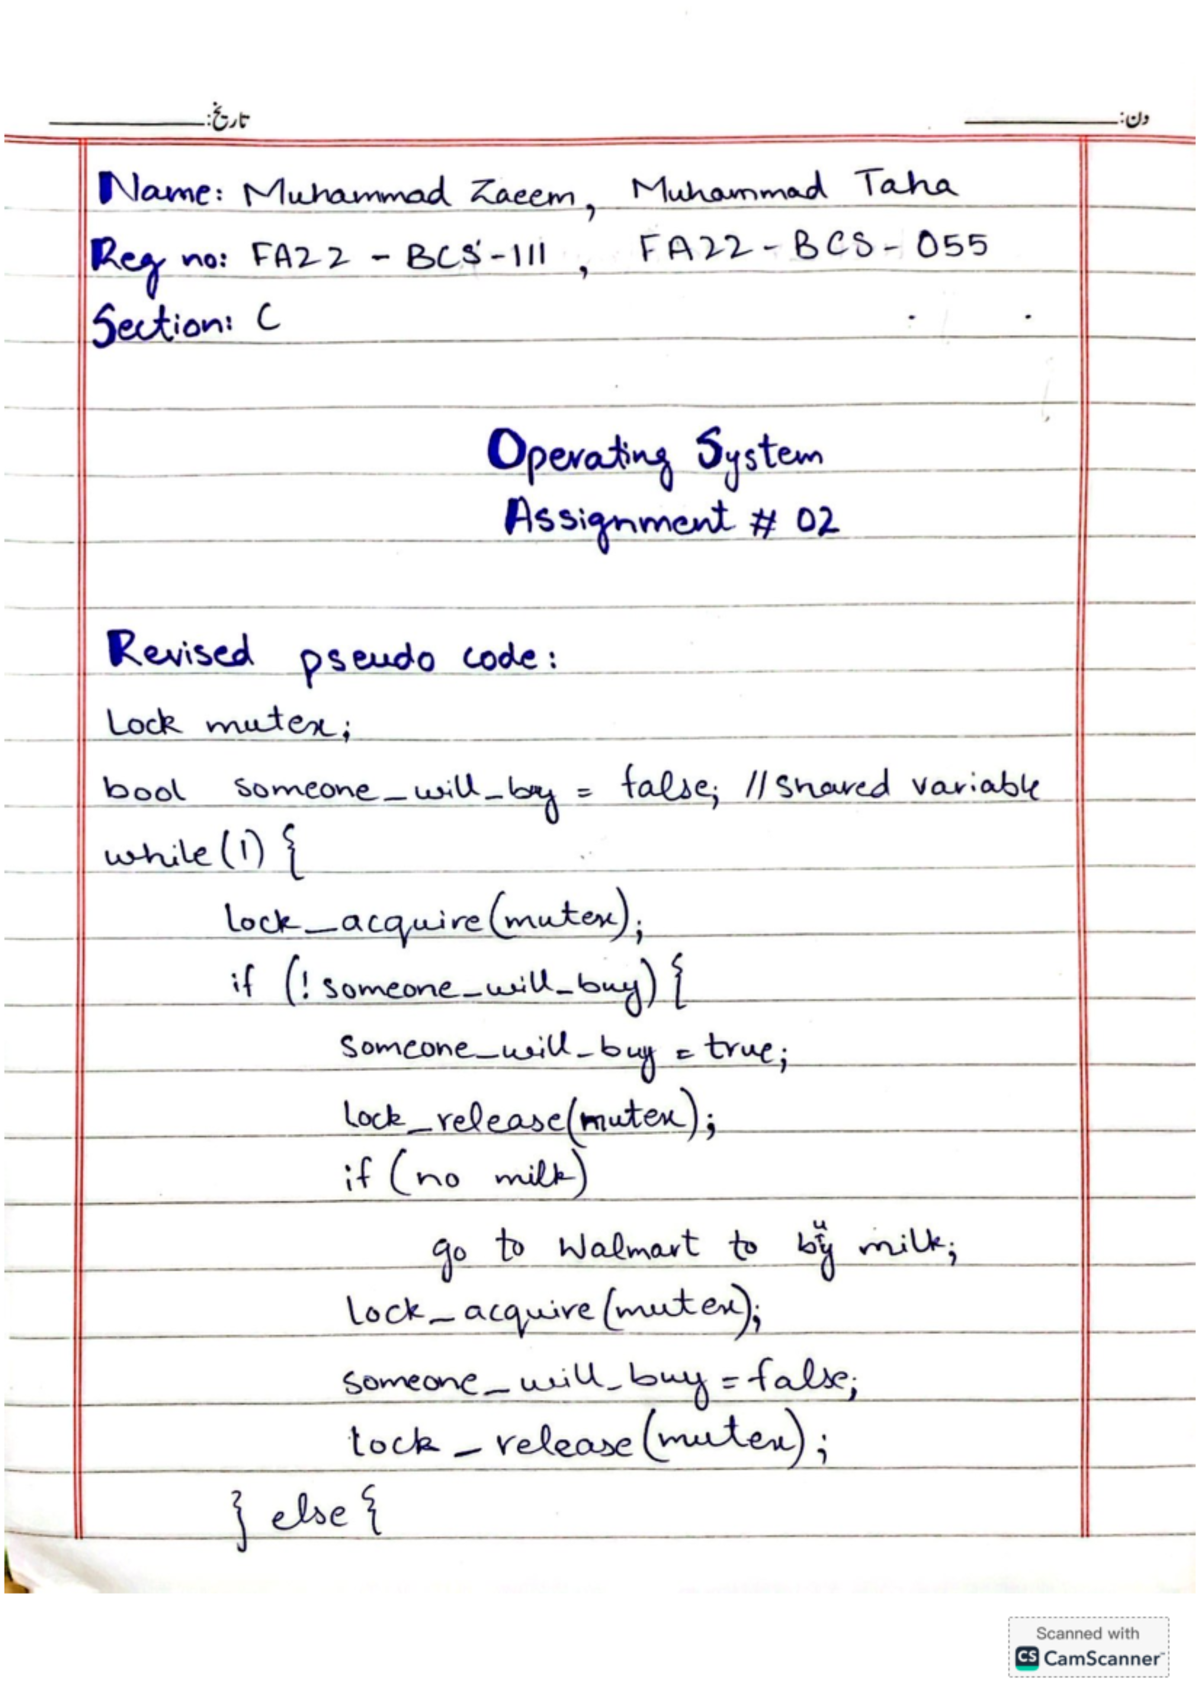 تاریخ: دن:
Name: Muhammad Zaeem, Muhammad Taha
Reg no: FA22 - BCS - 111 , FA22 - BCS - 055
Section: C
Operating System
Assignment # 02
Revised pseudo code:
Lock mutex;
bool someone_will_buy = false; // shared variable
while(1) {
lock_acquire(mutex);
if (! someone_will_buy) {
someone_will_buy = true;
lock_release(mutex);
if (no milk)
go to Walmart to buy milk;
lock_acquire(mutex);
someone_will_buy = false;
lock_release(mutex);
} else {
Scanned with
CS CamScanner